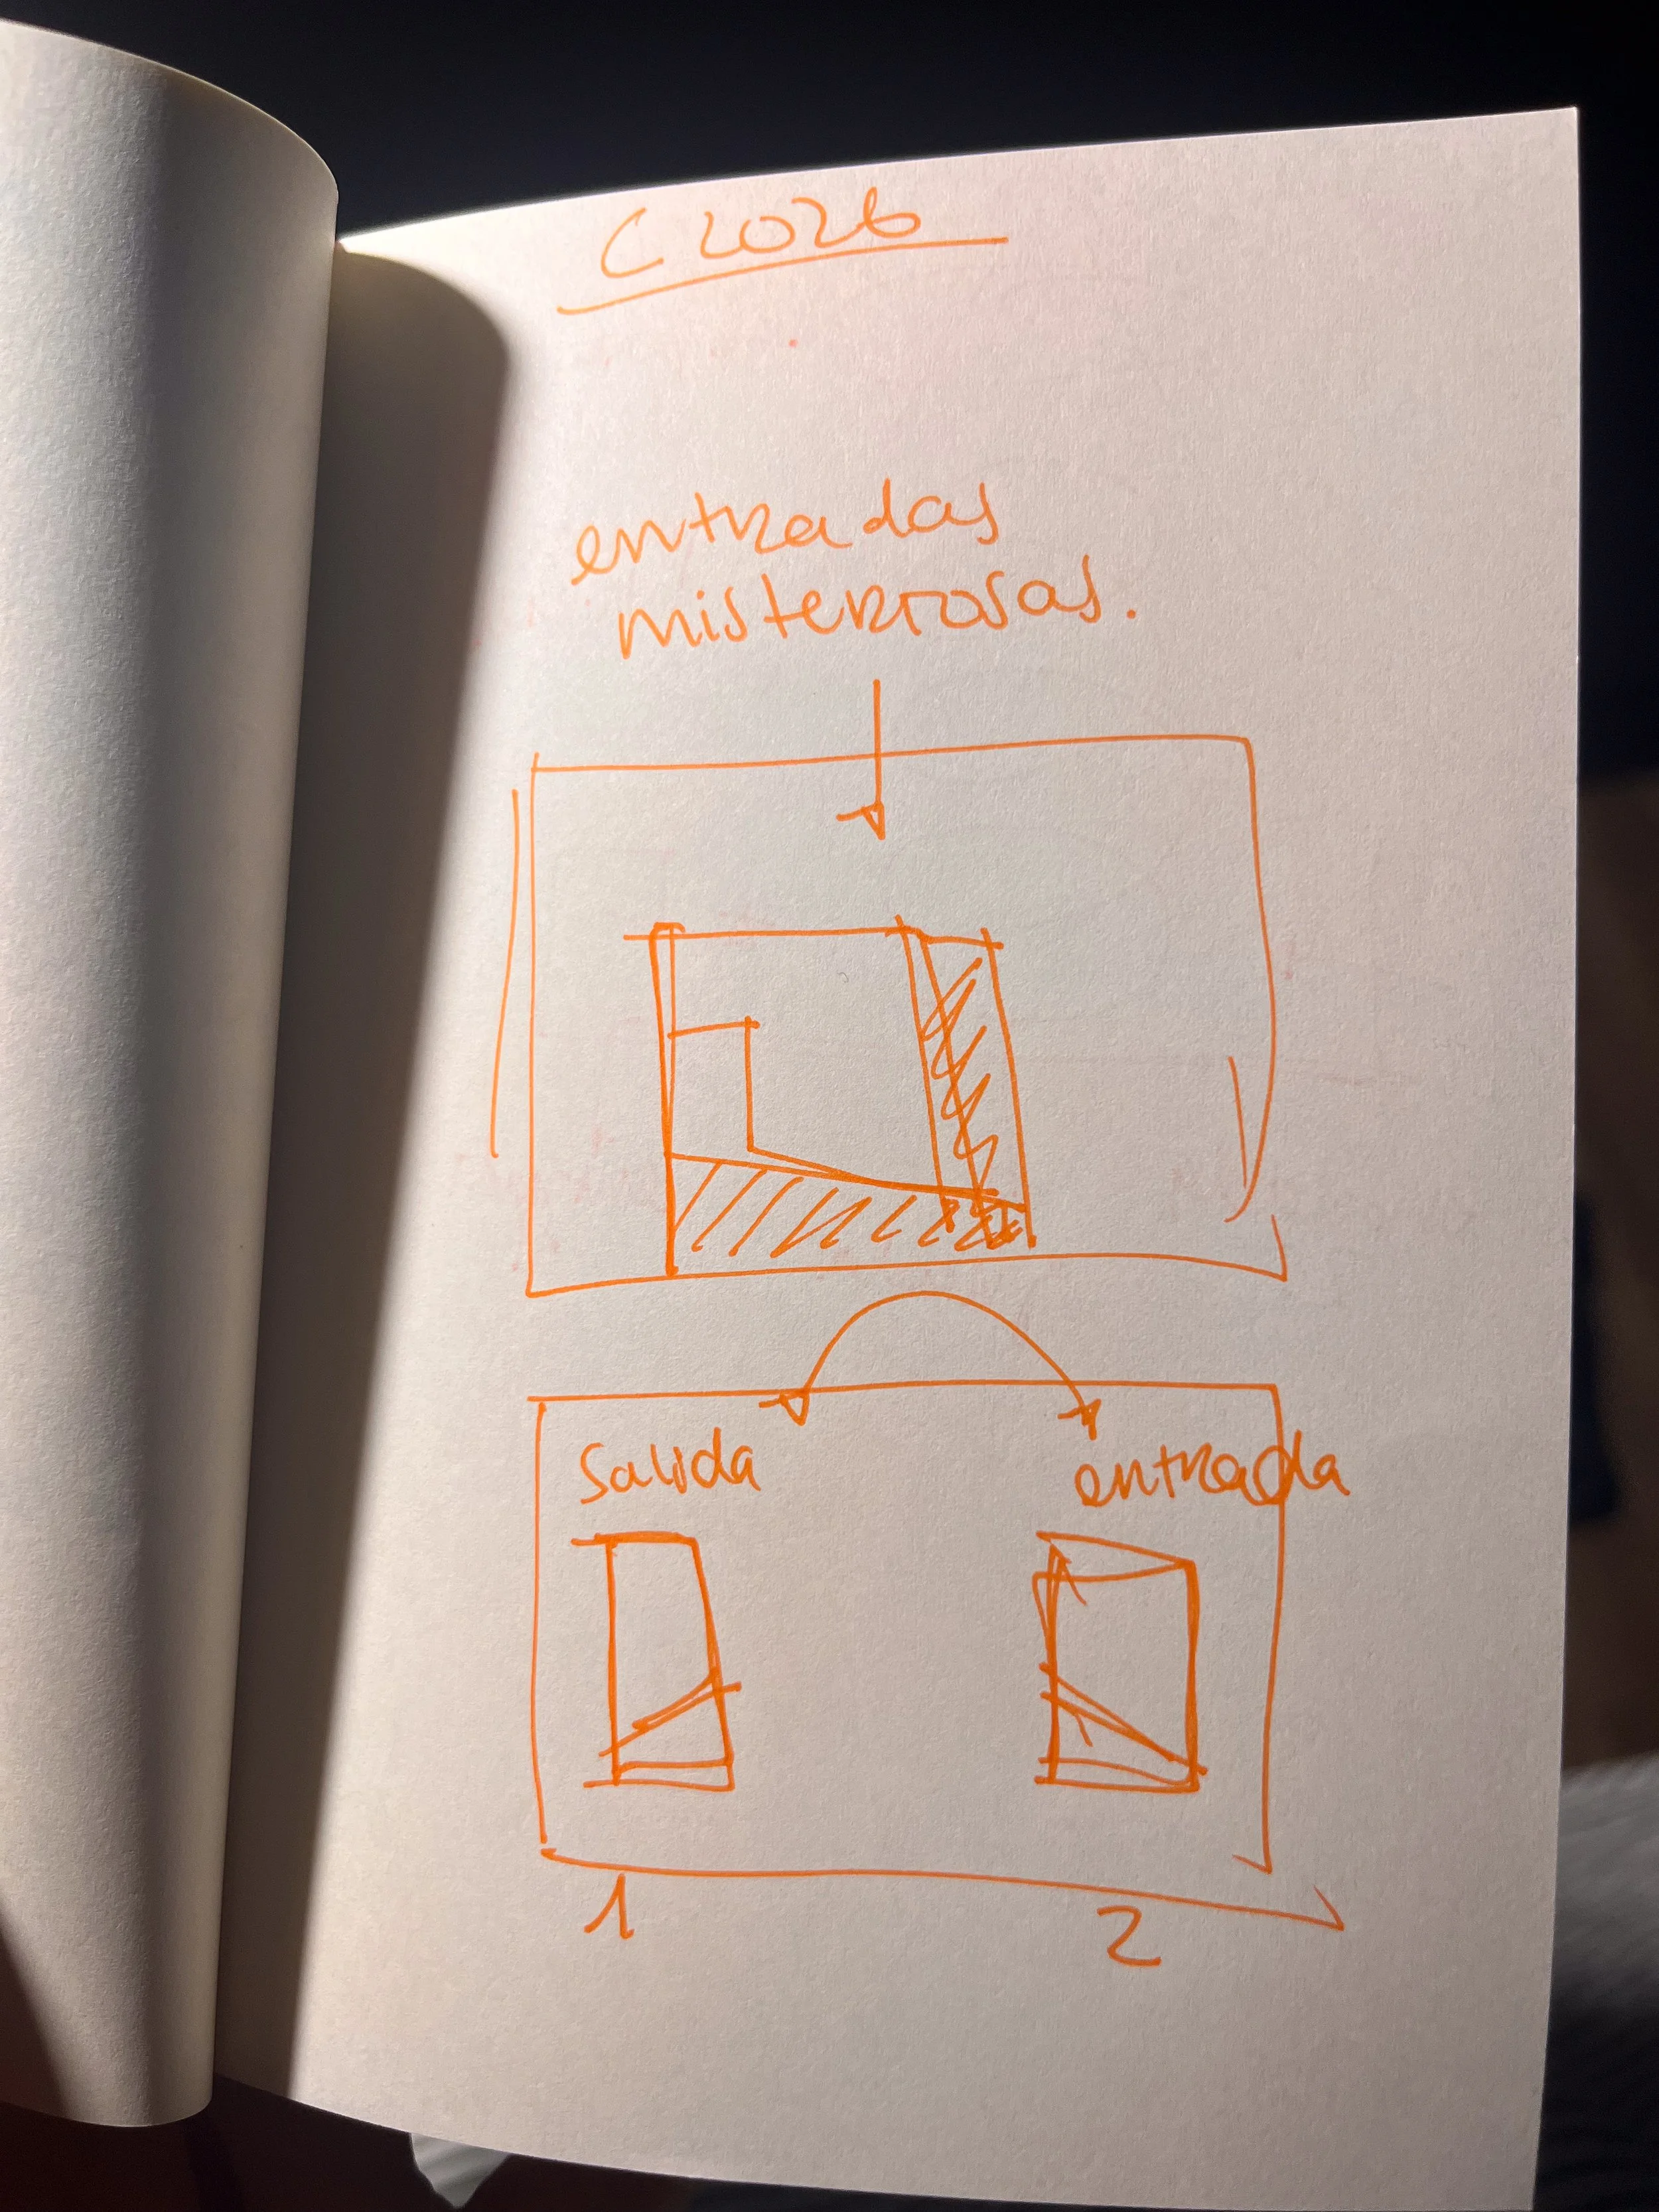 C 2026
entradas
misteriosas.
Salida
entrada
1
2